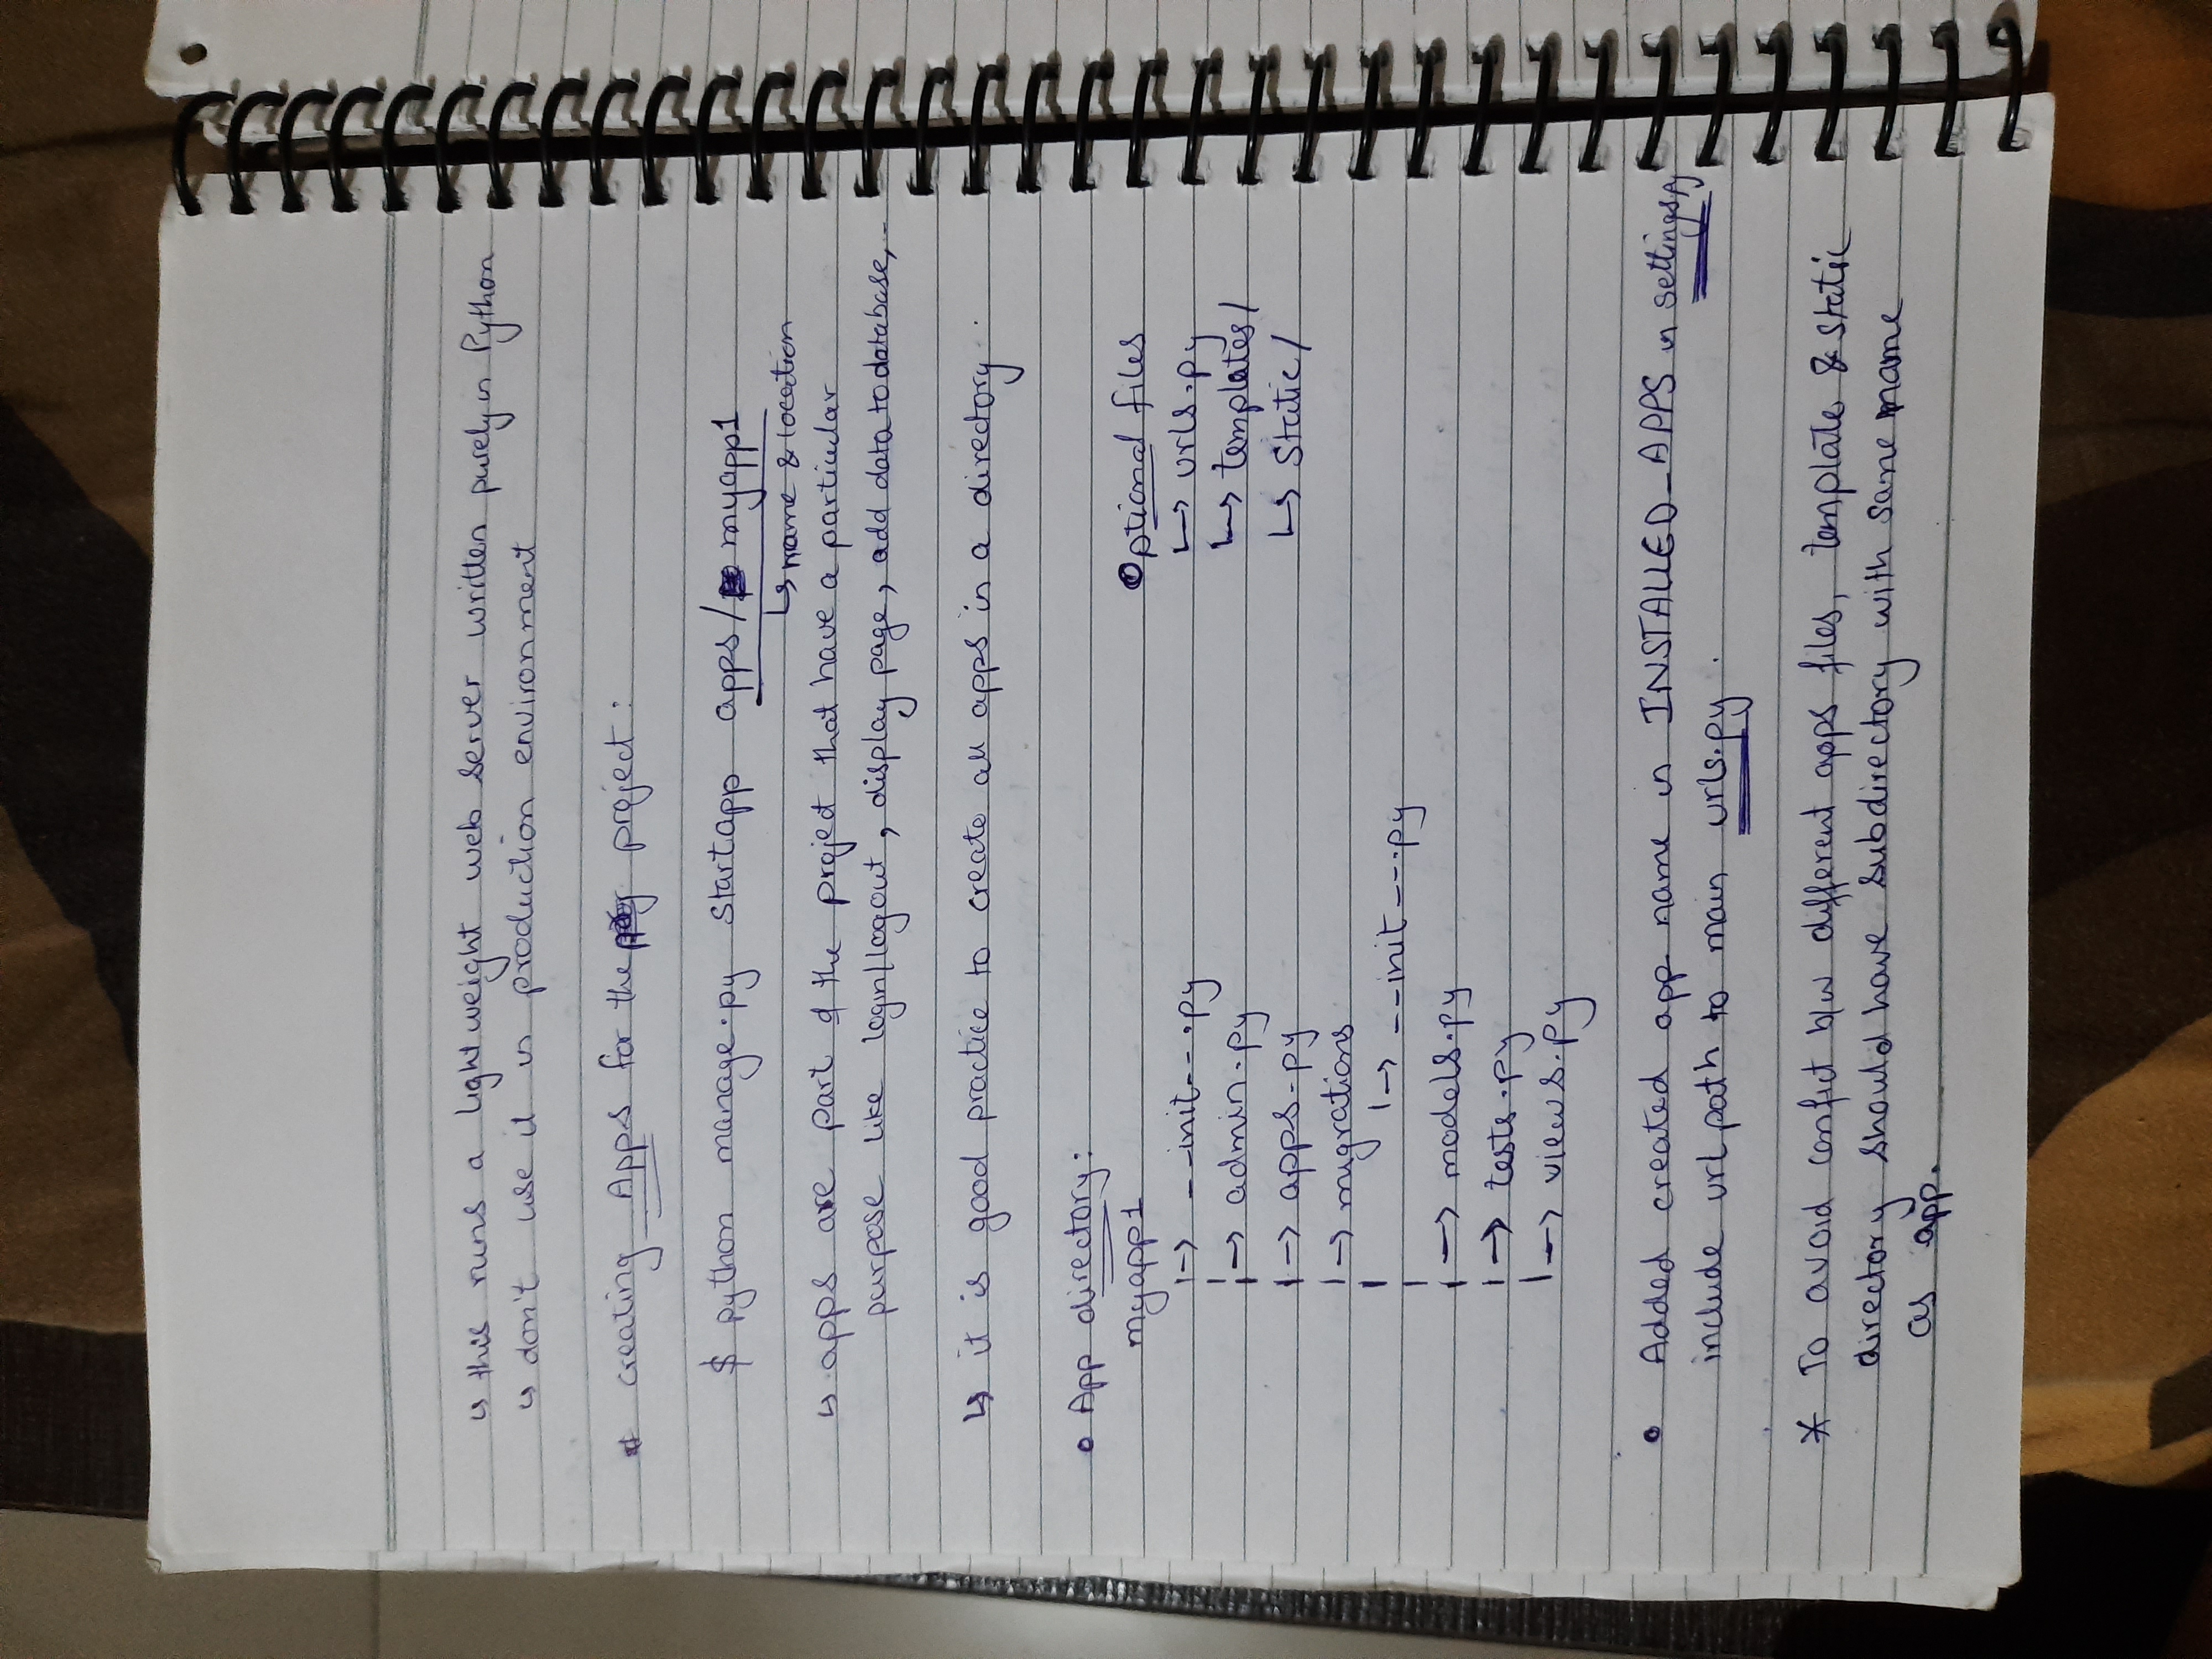 ↳ this runs a lightweight web server written purely in Python
↳ don't use it in production environment
* creating Apps for the project :
$ python manage.py startapp apps/ myapp1
↳ name & location
↳ apps are part of the project that have a particular
purpose like login/logout, display page, add data to database, -
↳ it is good practice to create all apps in a directory .
• App directory :
myapp1
Optional files
|-> __init__.py
↳ urls.py
|-> admin.py
↳ templates/
|-> apps.py
↳ static/
|-> migrations
|-> __init__.py
|-> models.py
|-> tests.py
|-> views.py
• Added created app name in INSTALLED_APPS in settings.py
include url path to main urls.py .
* To avoid confict b/w different apps files, template & static
directory should have subdirectory with same name
as app.